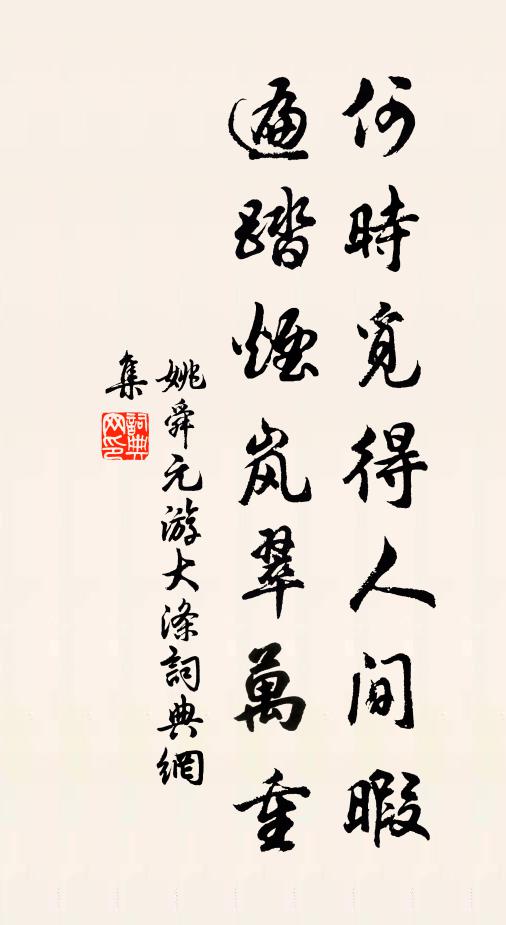 何時覓得人间暇
遍踏煙岚翠萬重
姚舜元游大滌詞典網
集
詞典
网印